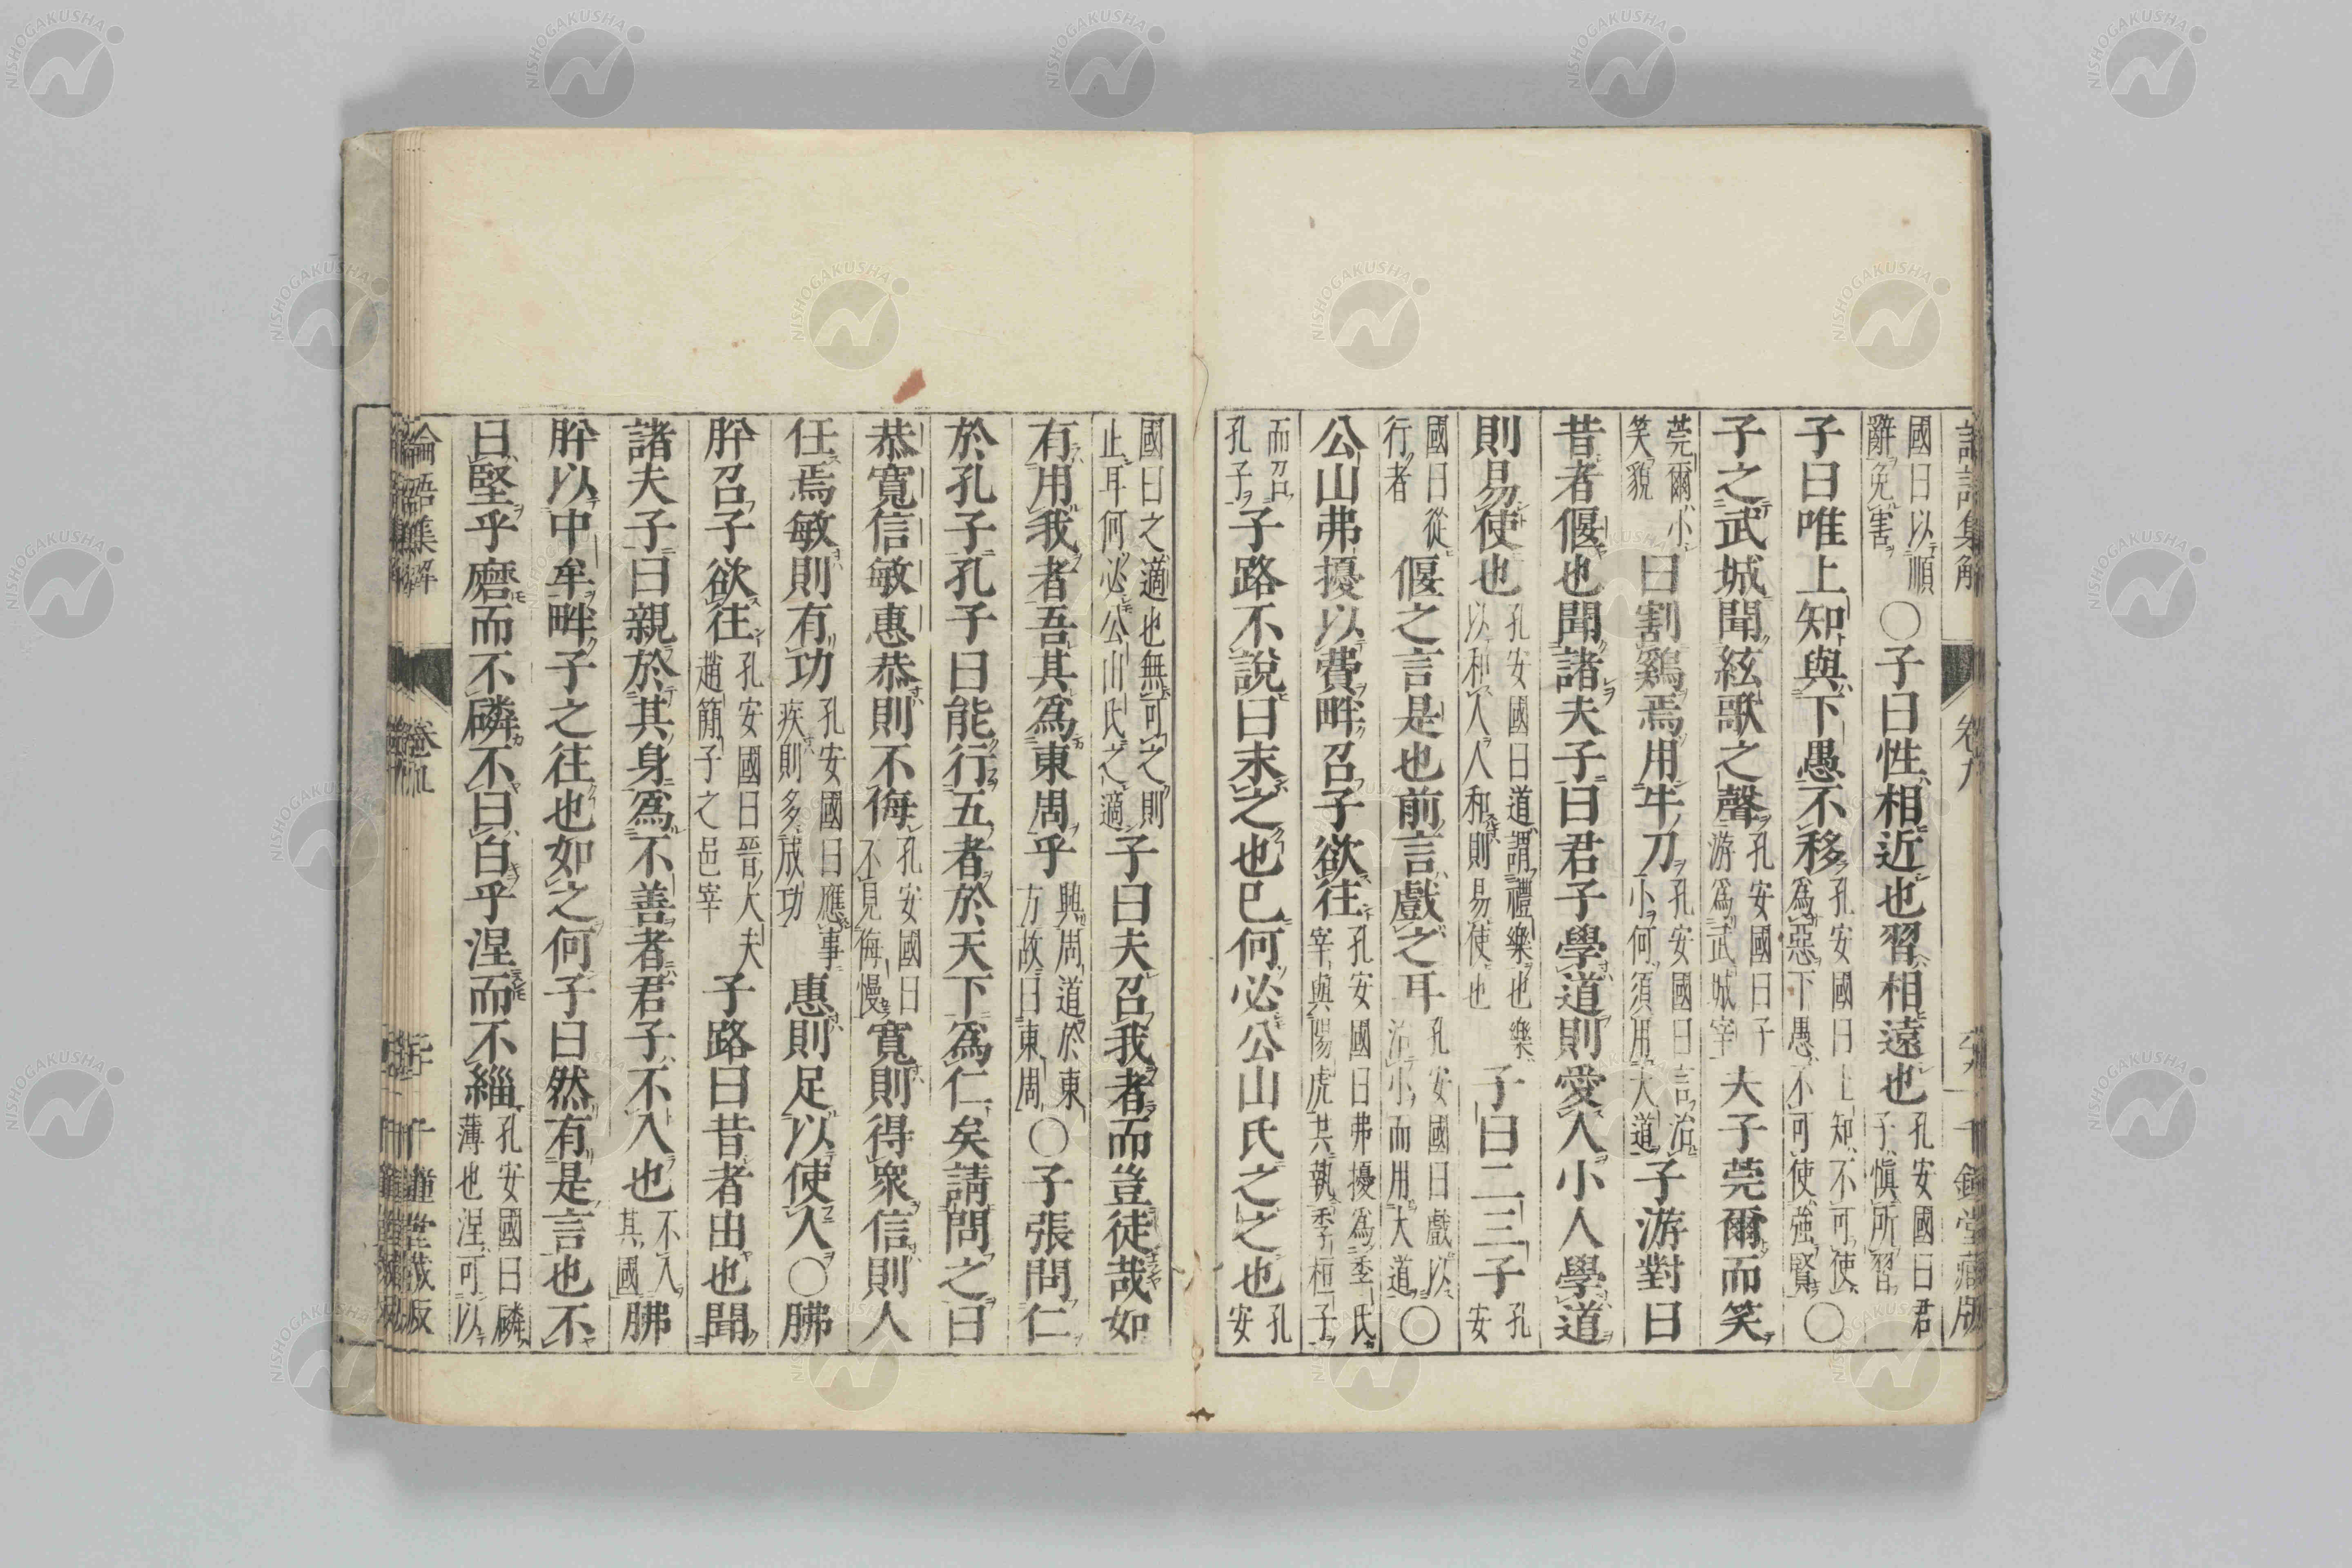 國曰以順辭免害〇子曰性相近也習相遠也孔安國曰君子愼所習
子曰唯上知與下愚不移孔安國曰上知不可使爲惡下愚不可使強賢〇
子之武城聞絃歌之聲孔安國曰子游爲武城宰夫子莞爾而笑
莞爾小笑貌曰割鷄焉用牛刀孔安國曰言治小何須用大道子游對曰
昔者偃也聞諸夫子曰君子學道則愛人小人學道
則易使也孔安國曰道謂禮樂也樂以和人人和則易使也子曰二三子孔安
國曰從行者偃之言是也前言戲之耳孔安國曰戲以治小而用大道〇
公山弗擾以費畔召子欲往孔安國曰弗擾爲季氏宰與陽虎共執季桓子
而召孔子子路不說曰末之也已何必公山氏之之也孔安
國曰之適也無可之則止耳何必公山氏之適子曰夫召我者而豈徒哉如
有用我者吾其爲東周乎興周道於東方故曰東周〇子張問仁
於孔子孔子曰能行五者於天下爲仁矣請問之曰
恭寬信敏惠恭則不侮孔安國曰不見侮慢寬則得衆信則人
任焉敏則有功孔安國曰應事疾則多成功惠則足以使人〇胇
肸召子欲往孔安國曰晉大夫趙簡子之邑宰子路曰昔者由也聞
諸夫子曰親於其身爲不善者君子不入也不入其國胇
肸以中牟畔子之往也如之何子曰然有是言也不
曰堅乎磨而不磷不曰白乎涅而不緇孔安國曰磷薄也涅可以
論語集解 卷九 千鍾堂藏版